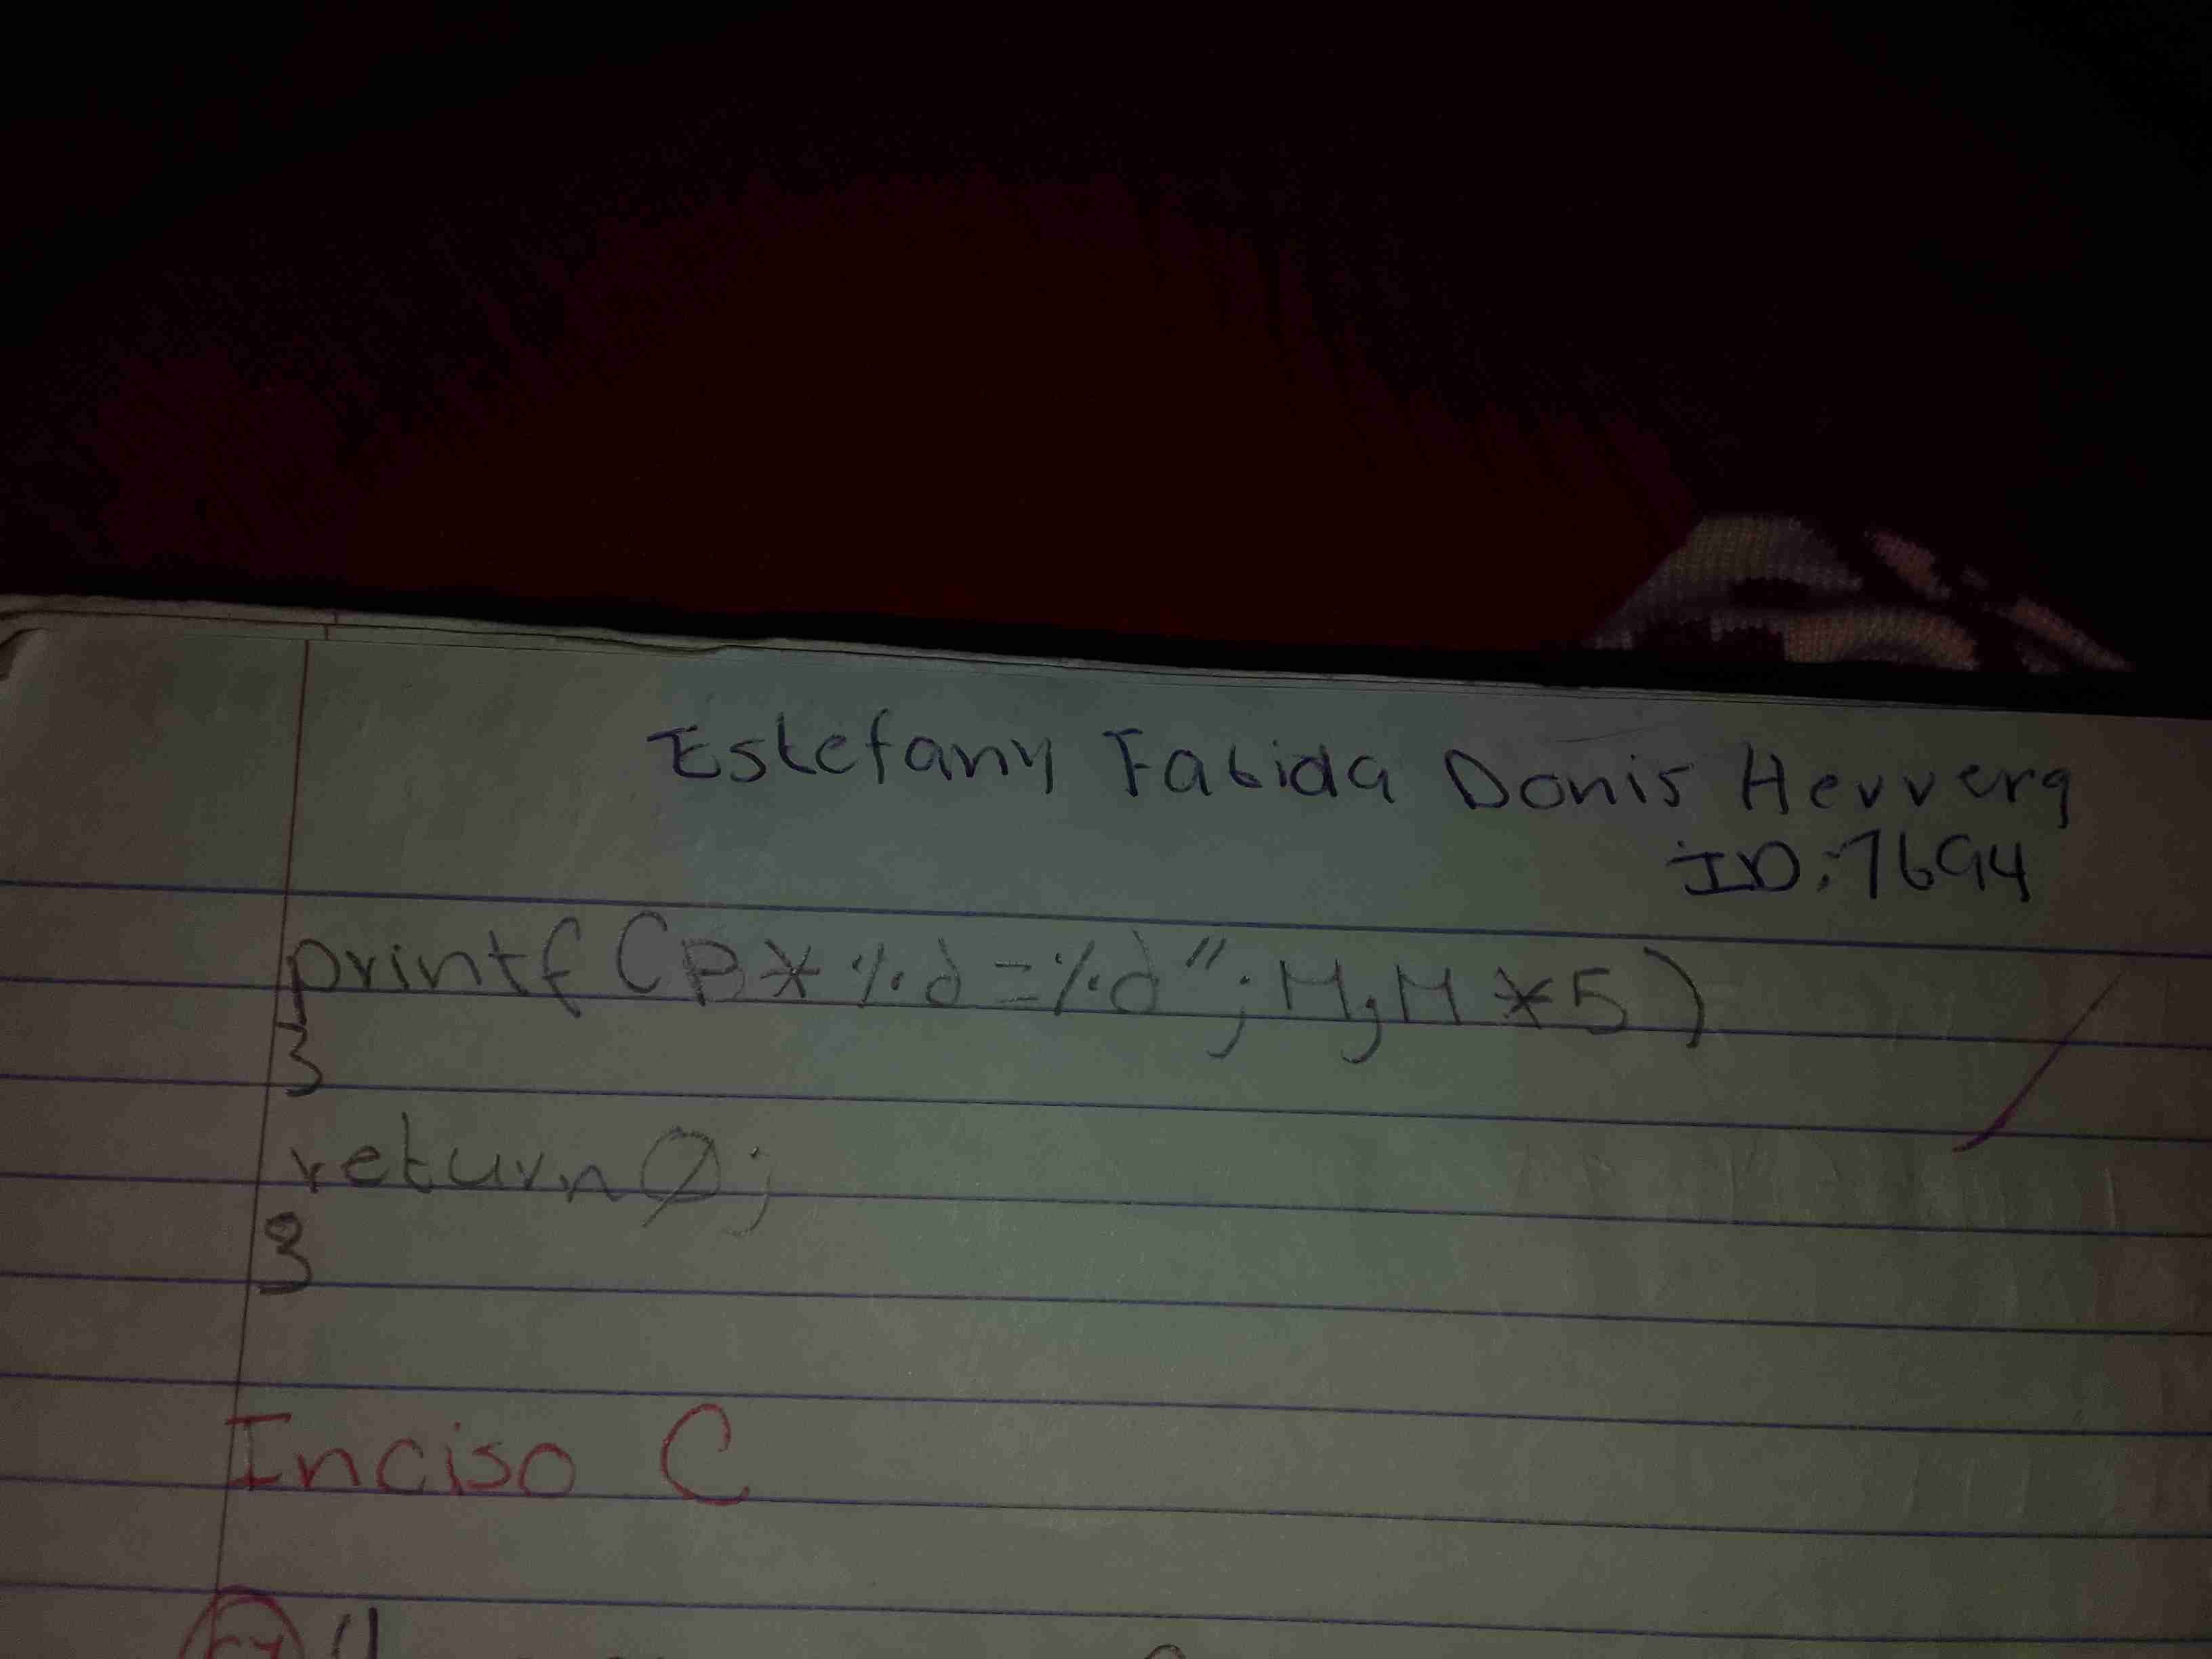 Estefany Fabida Donis Herrera
ID:7694
printf (B*%d=%d";M,M*5)
}
return 0;
}
Inciso C